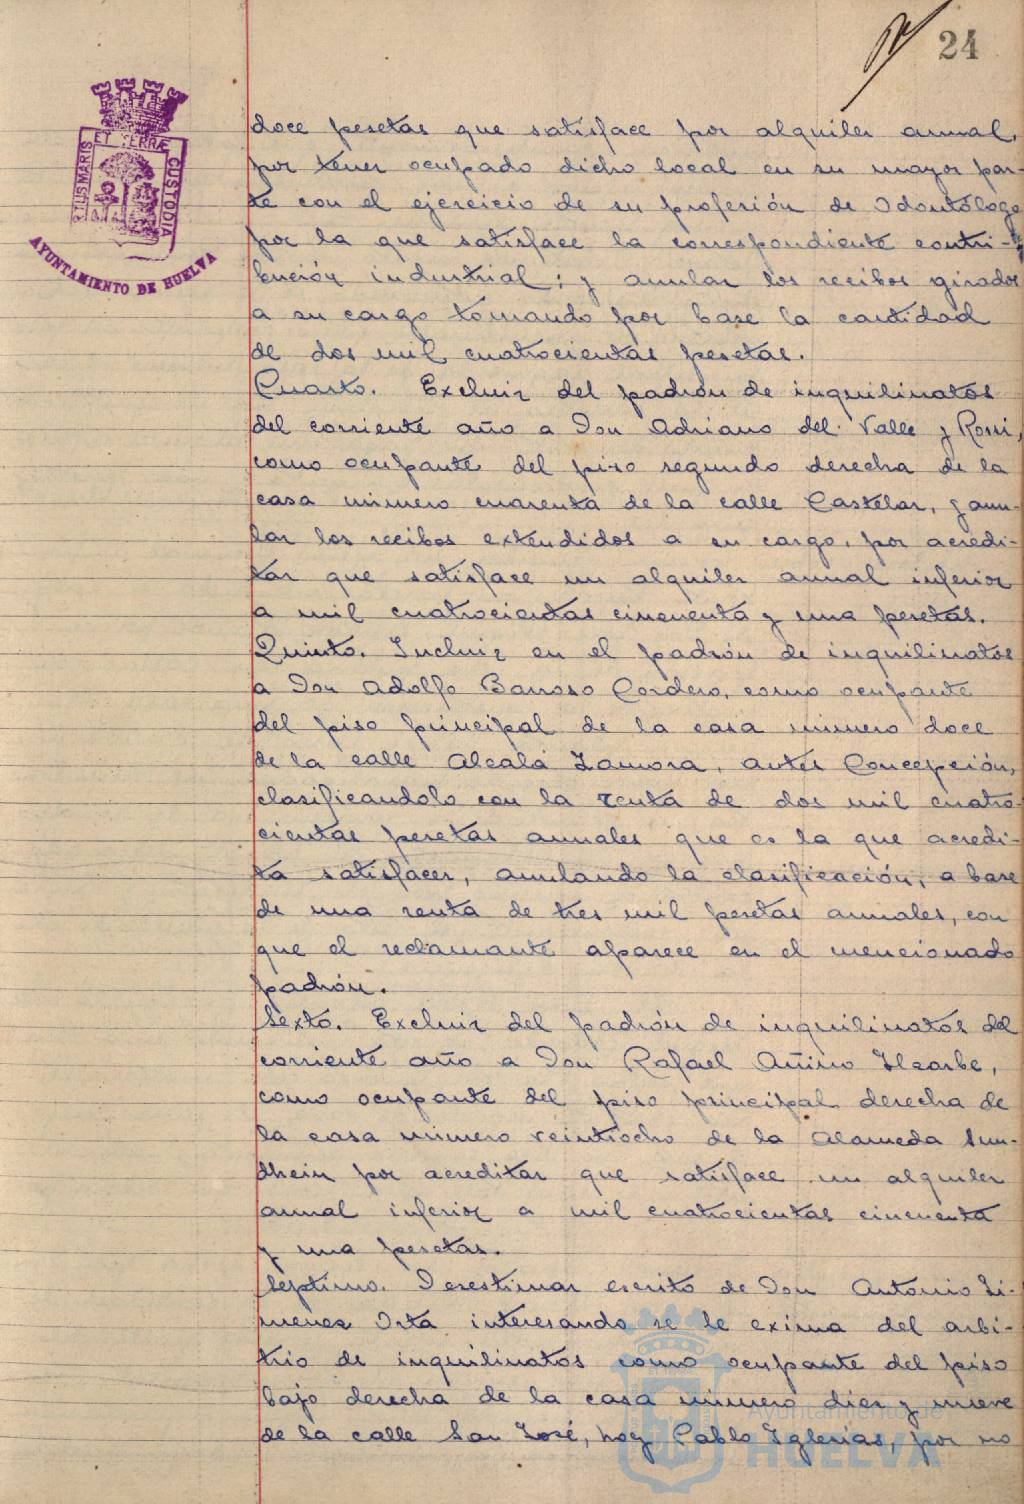 24
PORTUS MARIS ET TERRÆ CUSTODIA
AYUNTAMIENTO DE HUELVA
doce pesetas que satisface por alquiler anual,
por tener ocupado dicho local en su mayor par-
te con el ejercicio de su profesión de Odontólogo
por la que satisface la correspondiente contri-
bución industrial; y anular los recibos girados
a su cargo tomando por base la cantidad
de dos mil cuatrocientas pesetas.
Cuarto. Excluir del padrón de inquilinatos
del corriente año a Don Adriano del Valle y Rossi,
como ocupante del piso segundo derecha de la
casa número cuarenta de la calle Castelar, y anu-
lar los recibos extendidos a su cargo, por acredi-
tar que satisface un alquiler anual inferior
a mil cuatrocientas cincuenta y una pesetas.
Quinto. Incluir en el padrón de inquilinatos
a Don Adolfo Barroso Cordero, como ocupante
del piso principal de la casa número doce
de la calle Alcalá Zamora, antes Concepción,
clasificandolo con la renta de dos mil cuatro-
cientas pesetas anuales que es la que acredi-
ta satisfacer, anulando la clasificación, a base
de una renta de tres mil pesetas anuales, con
que el reclamante aparece en el mencionado
padrón.
Sexto. Excluir del padrón de inquilinatos del
corriente año a Don Rafael Añino Ilzarbe,
como ocupante del piso principal derecha de
la casa número veintiocho de la Alameda Sun-
dhein por acreditar que satisface un alquiler
anual inferior a mil cuatrocientas cincuenta
y una pesetas.
Septimo. Desestimar escrito de Don Antonio Ji-
menez Orta interesando se le exima del arbi-
trio de inquilinatos como ocupante del piso
bajo derecha de la casa número diez y nueve
de la calle San José, hoy Pablo Iglesias, por no
Ayuntamiento de
HUELVA